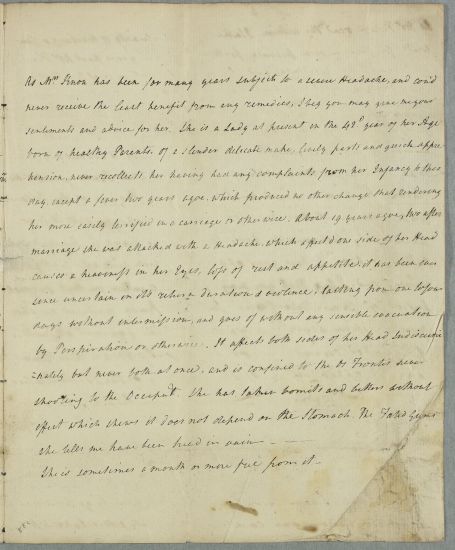 As Mrs. Simon has been for many years subject to a severe Headache, and cou'd
never receive the least benefit from any remedies, I beg you may give me your
sentements and advice for her. She is a Lady at present in the 42d year of her Age
born of healthy Parents. of a slender delicate make, lively parts and quick appre
hension, never recollects her having had any complaints from her Infancy to this
day, except a fever two years agoe, which produced no other change that rendering
her more easily terrified in a carriage or otherwise. About 19 years agoe, two after
marriage she was attacked with a Headache, which affected one side of her Head
causes a heaviness in her Eyes, loss of rest and appetite, it has been ever
since uncertain in its return duration & violence. lasting from one to four
days without intermission, and goes of without any sensible evacuation
by Perspiration or otherwise. It affects both sides of her Head Indiscrimi
nately but never both at once, and is confined to the Os Frontis never
shooting to the Occiput. She has taken vomits and bitters without
effect which shews it does not depend on the Stomach. The Fœtid Gums
she tells me have been tried in vain
She is sometimes a month or more free from it